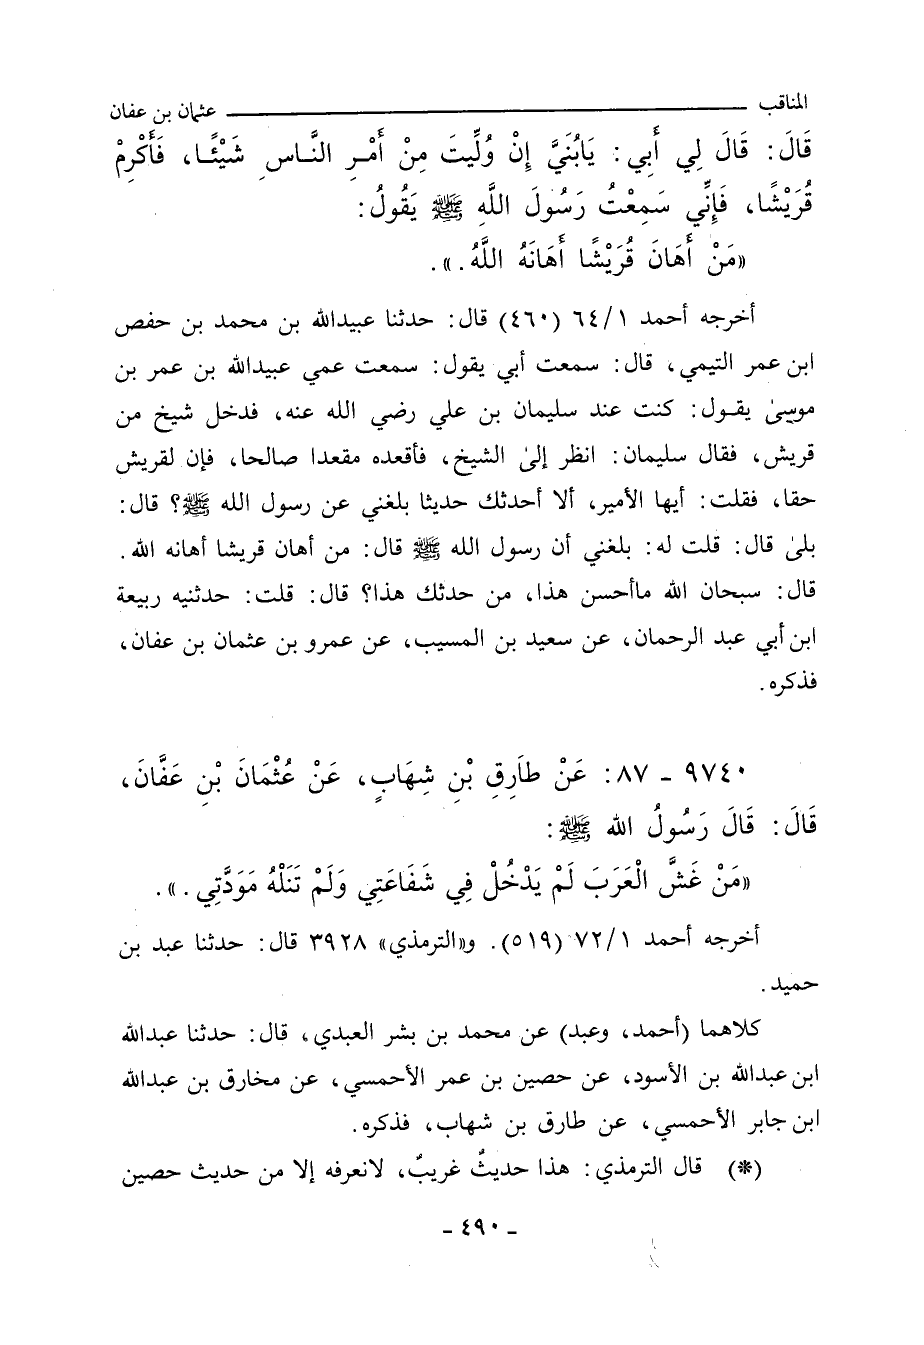 المناقب ــــــ عثمان بن عفان
قَالَ: قَالَ لِي أَبِي: يَابُنَيَّ إِنْ وُلِّيتَ مِنْ أَمْرِ النَّاسِ شَيْئًا، فَأَكْرِمْ
قُرَيْشًا، فَإِنِّي سَمِعْتُ رَسُولَ اللَّهِ ﷺ يَقُولُ:
«مَنْ أَهَانَ قُرَيْشًا أَهَانَهُ اللَّهُ.».
أخرجه أحمد ٦٤/١ (٤٦٠) قال: حدثنا عبيدالله بن محمد بن حفص
ابن عمر التيمي، قال: سمعت أبي يقول: سمعت عمي عبيدالله بن عمر بن
موسىٰ يقول: كنت عند سليمان بن علي رضي الله عنه، فدخل شيخ من
قريش، فقال سليمان: انظر إلىٰ الشيخ، فأقعده مقعدا صالحا، فإن لقريش
حقا، فقلت: أيها الأمير، ألا أحدثك حديثا بلغني عن رسول الله ﷺ؟ قال:
بلىٰ قال: قلت له: بلغني أن رسول الله ﷺ قال: من أهان قريشا أهانه الله.
قال: سبحان الله ماأحسن هذا، من حدثك هذا؟ قال: قلت: حدثنيه ربيعة
ابن أبي عبد الرحمان، عن سعيد بن المسيب، عن عمرو بن عثمان بن عفان،
فذكره.
٩٧٤٠ - ٨٧: عَنْ طَارِقِ بْنِ شِهَابٍ، عَنْ عُثْمَانَ بْنِ عَفَّانَ،
قَالَ: قَالَ رَسُولُ الله ﷺ:
«مَنْ غَشَّ الْعَرَبَ لَمْ يَدْخُلْ فِي شَفَاعَتِي وَلَمْ تَنَلْهُ مَوَدَّتِي.».
أخرجه أحمد ٧٢/١ (٥١٩). و«الترمذي» ٣٩٢٨ قال: حدثنا عبد بن
حميد.
كلاهما (أحمد، وعبد) عن محمد بن بشر العبدي، قال: حدثنا عبدالله
ابن عبدالله بن الأسود، عن حصين بن عمر الأحمسي، عن مخارق بن عبدالله
ابن جابر الأحمسي، عن طارق بن شهاب، فذكره.
(*) قال الترمذي: هذا حديثٌ غريبٌ، لانعرفه إلا من حديث حصين
- ٤٩٠ -